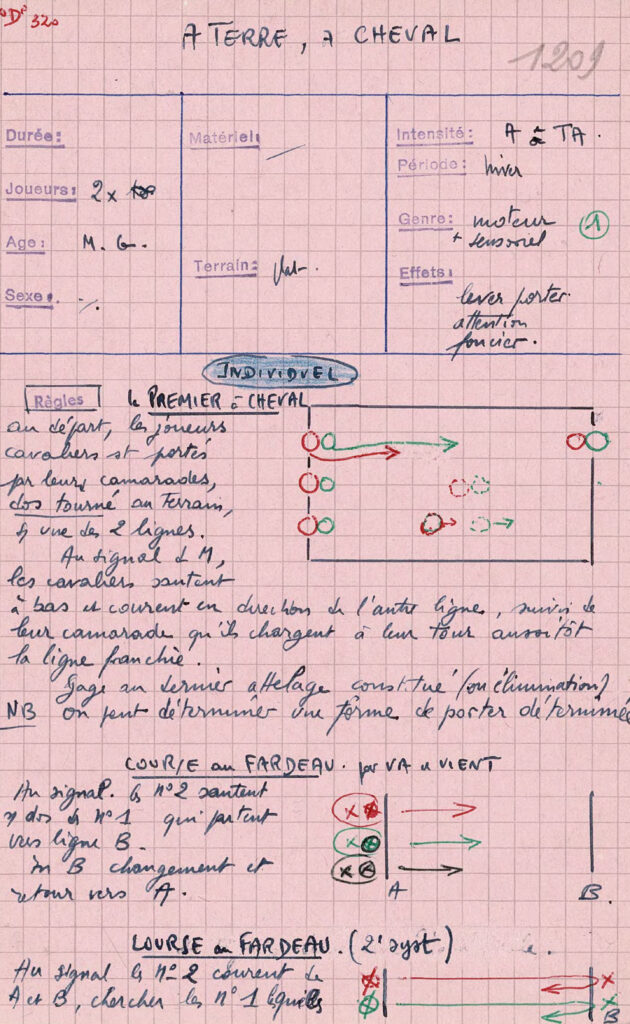 D° 320
A TERRE, A CHEVAL
1209
Durée:
Joueurs: 2 x
Age: M. G.
Sexe:
Matériel:
Terrain: plat.
Intensité: A à TA.
Période: hiver
Genre: moteur
+ sensoriel
1
Effets:
lever porter.
attention
foncier.
INDIVIDUEL
Règles
le PREMIER à CHEVAL
au départ, les joueurs
cavaliers st portés
par leurs camarades,
dos tourné au terrain,
vue des 2 lignes.
Au signal d M,
les cavaliers sautent
à bas et courent en direction de l'autre ligne, suivis de
leur camarade qu'ils chargent à leur tour aussitôt
la ligne franchie.
Gage au dernier attelage constitué (ou élimination)
NB on peut déterminer une forme de porter déterminée
COURSE au FARDEAU. par VA et VIENT
Au signal. les n° 2 sautent
dos n° 1 qui partent
vers ligne B.
En B changement et
retour vers A.
A
B.
COURSE au FARDEAU. (2e syst.)
Au signal les n° 2 courent de
A et B, chercher les n° 1 lesquels
B